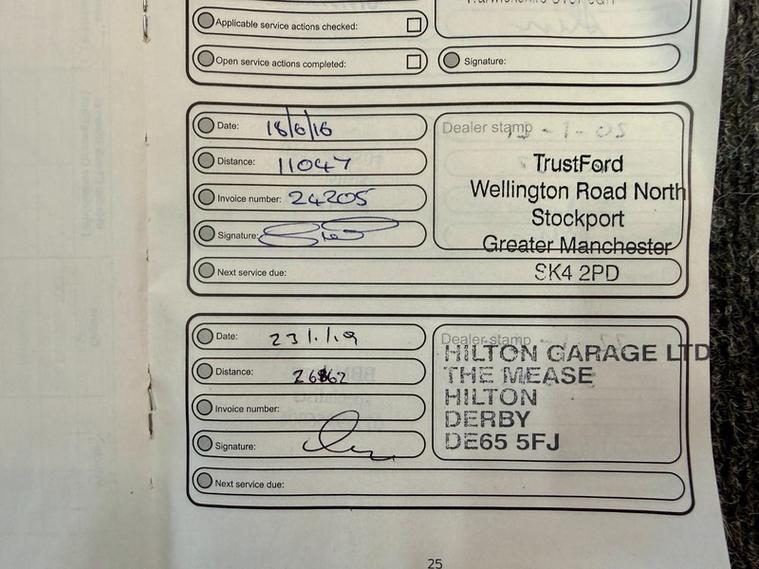 Applicable service actions checked:
Open service actions completed:
Signature:
Date: 18/6/16
Distance: 11047
Invoice number: 24205
Signature:
Next service due:
Dealer stamp
TrustFord
Wellington Road North
Stockport
Greater Manchester
SK4 2PD
Date: 23/1/19
Distance:
Invoice number:
Signature:
Next service due:
Dealer stamp
HILTON GARAGE LTD
THE MEASE
HILTON
DERBY
DE65 5FJ
25